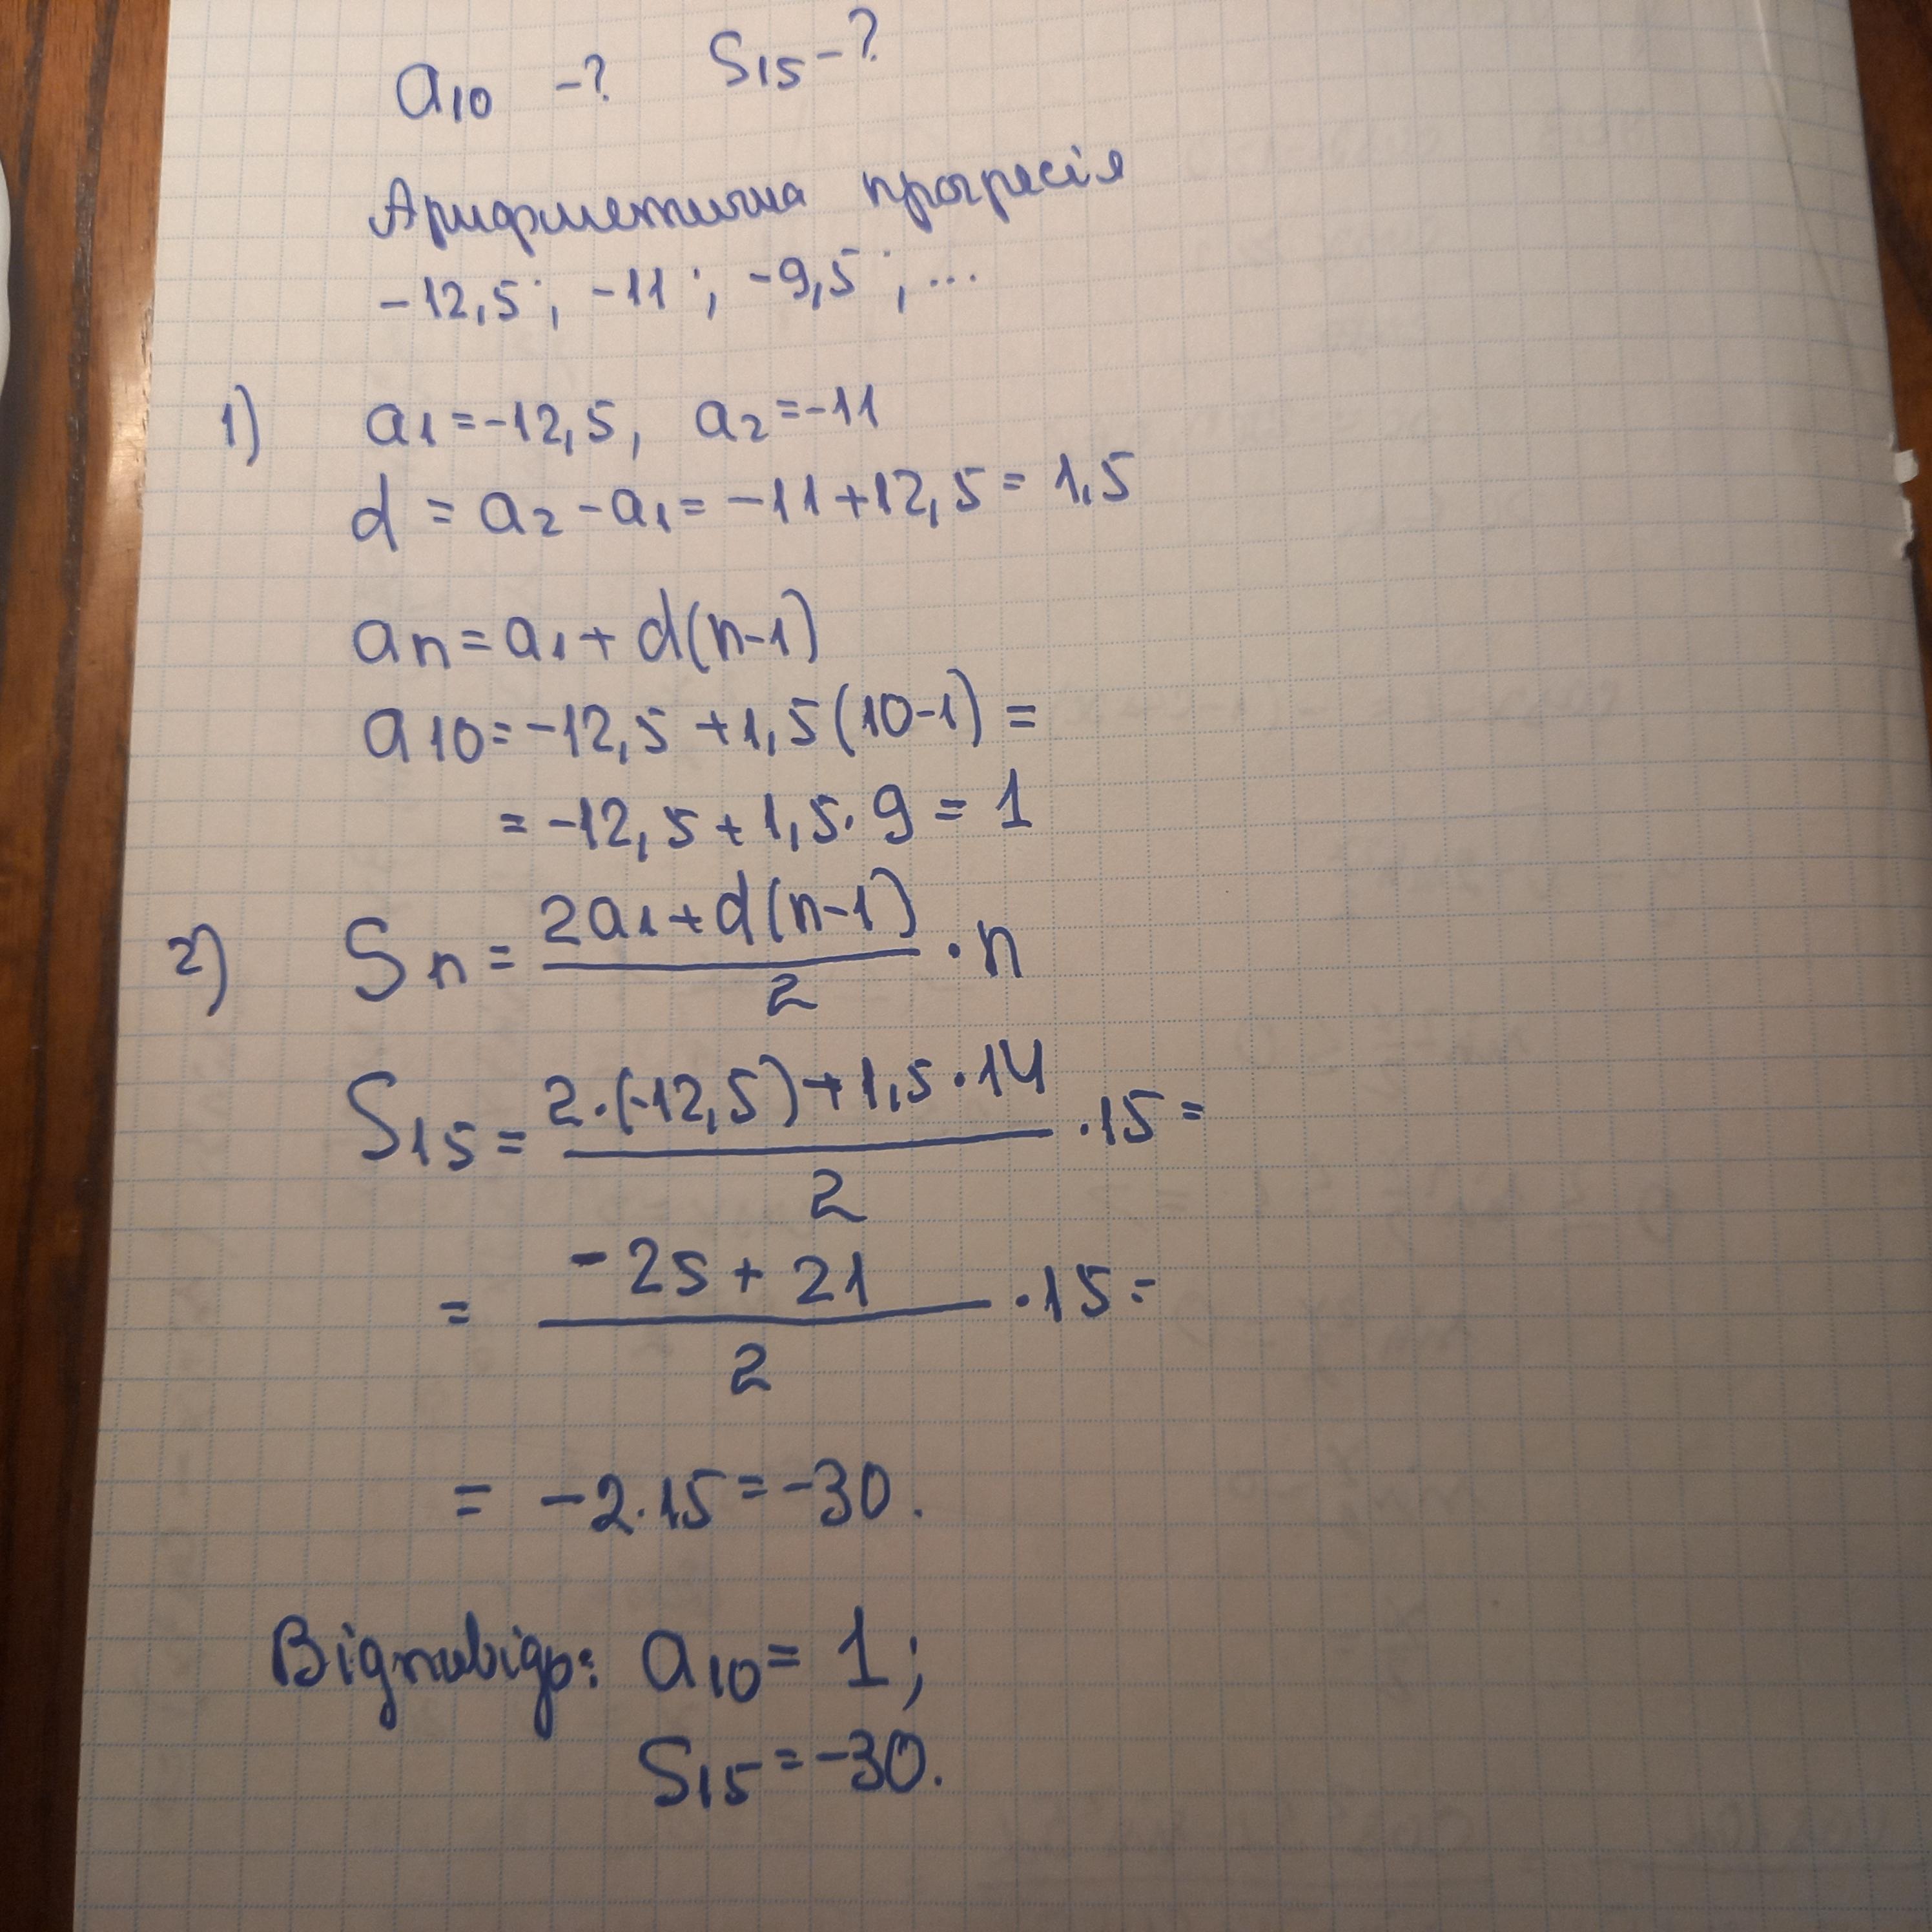 a₁₀ -? S₁₅ -?
Арифметична прогресія
-12,5; -11; -9,5; ...
1) a₁ = -12,5, a₂ = -11
d = a₂ - a₁ = -11 + 12,5 = 1,5
aₙ = a₁ + d(n-1)
a₁₀ = -12,5 + 1,5(10-1) =
= -12,5 + 1,5 · 9 = 1
2) Sₙ = \frac{2a₁ + d(n-1)}{2} · n
S₁₅ = \frac{2·(-12,5) + 1,5·14}{2} · 15 =
= \frac{-25 + 21}{2} · 15 =
= -2·15 = -30.
Відповідь: a₁₀ = 1;
S₁₅ = -30.